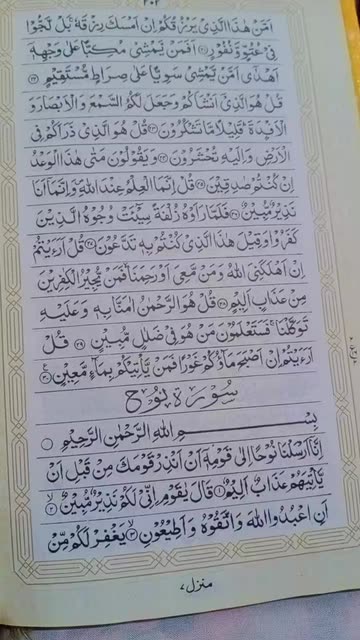 اَمَّنْ هٰذَا الَّذِیْ یَرْزُقُكُمْ اِنْ اَمْسَكَ رِزْقَهٗ ۚ بَلْ لَّجُّوْا
فِیْ عُتُوٍّ وَّنُفُوْرٍ ﴿۲۱﴾ اَفَمَنْ یَّمْشِیْ مُكِبًّا عَلٰی وَجْهِهٖۤ
اَهْدٰۤی اَمَّنْ یَّمْشِیْ سَوِیًّا عَلٰی صِرَاطٍ مُّسْتَقِیْمٍ ﴿۲۲﴾
قُلْ هُوَ الَّذِیْۤ اَنْشَاَكُمْ وَجَعَلَ لَكُمُ السَّمْعَ وَالْاَبْصَارَ وَ
الْاَفْـِٕدَةَ ؕ قَلِیْلًا مَّا تَشْكُرُوْنَ ﴿۲۳﴾ قُلْ هُوَ الَّذِیْ ذَرَاَكُمْ فِی
الْاَرْضِ وَاِلَیْهِ تُحْشَرُوْنَ ﴿۲۴﴾ وَیَقُوْلُوْنَ مَتٰی هٰذَا الْوَعْدُ
اِنْ كُنْتُمْ صٰدِقِیْنَ ﴿۲۵﴾ قُلْ اِنَّمَا الْعِلْمُ عِنْدَ اللّٰهِ ۪ وَاِنَّمَاۤ اَنَا
نَذِیْرٌ مُّبِیْنٌ ﴿۲۶﴾ فَلَمَّا رَاَوْهُ زُلْفَةً سِیْٓـَٔتْ وُجُوْهُ الَّذِیْنَ
كَفَرُوْا وَقِیْلَ هٰذَا الَّذِیْ كُنْتُمْ بِهٖ تَدَّعُوْنَ ﴿۲۷﴾ قُلْ اَرَءَیْتُمْ
اِنْ اَهْلَكَنِیَ اللّٰهُ وَمَنْ مَّعِیَ اَوْ رَحِمَنَا ۙ فَمَنْ یُّجِیْرُ الْكٰفِرِیْنَ
مِنْ عَذَابٍ اَلِیْمٍ ﴿۲۸﴾ قُلْ هُوَ الرَّحْمٰنُ اٰمَنَّا بِهٖ وَعَلَیْهِ
تَوَكَّلْنَا ۚ فَسَتَعْلَمُوْنَ مَنْ هُوَ فِیْ ضَلٰلٍ مُّبِیْنٍ ﴿۲۹﴾ قُلْ
اَرَءَیْتُمْ اِنْ اَصْبَحَ مَآؤُكُمْ غَوْرًا فَمَنْ یَّاْتِیْكُمْ بِمَآءٍ مَّعِیْنٍ ﴿۳۰﴾
سورة نوح
بِسْمِ اللّٰهِ الرَّحْمٰنِ الرَّحِیْمِ
اِنَّاۤ اَرْسَلْنَا نُوْحًا اِلٰی قَوْمِهٖۤ اَنْ اَنْذِرْ قَوْمَكَ مِنْ قَبْلِ اَنْ
یَّاْتِیَهُمْ عَذَابٌ اَلِیْمٌ ﴿۱﴾ قَالَ یٰقَوْمِ اِنِّیْ لَكُمْ نَذِیْرٌ مُّبِیْنٌ ﴿۲﴾
اَنِ اعْبُدُوا اللّٰهَ وَاتَّقُوْهُ وَاَطِیْعُوْنِ ﴿۳﴾ یَغْفِرْ لَكُمْ مِّنْ
منزل ۷